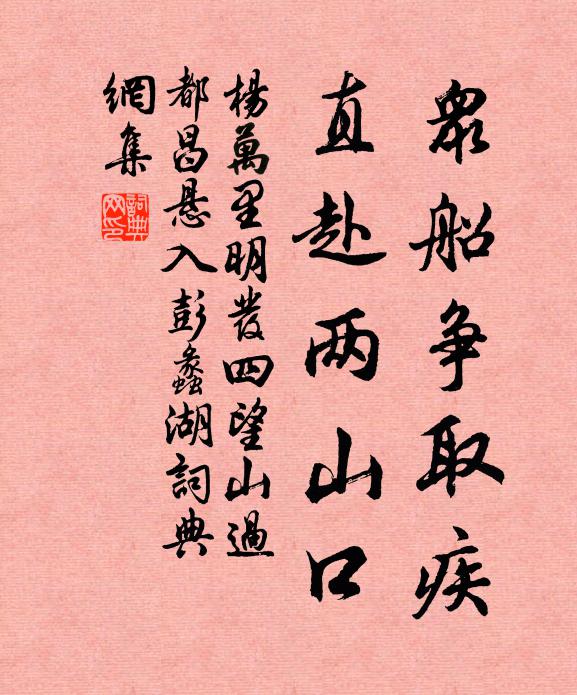 衆船争取疾
直赴两山口
楊萬里明發四望山過
都昌悬入彭蠡湖詞典
網集
詞典
网印